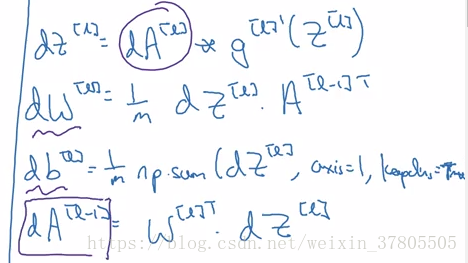 dZ^[l] = dA^[l] * g^[l]'(Z^[l])
dW^[l] = 1/m dZ^[l] · A^[l-1]T
db^[l] = 1/m np.sum(dZ^[l], axis=1, keepdims=True
dA^[l-1] = W^[l]T · dZ^[l]
https://blog.csdn.net/weixin_37805505